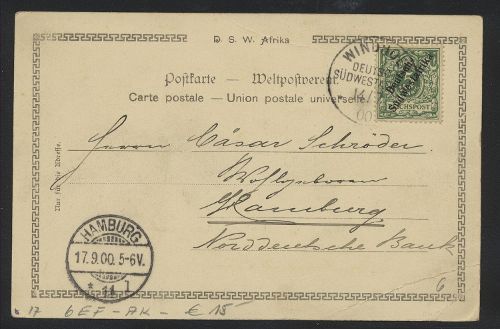 D. S. W. Afrika
WINDHOEK
DEUTSCH
SÜDWEST
Deutsch-
Südwestafrika
REICHSPOST
Postkarte — Weltpostverein
Carte postale — Union postale universelle
Nur für die Adresse.
Herrn Cäsar Schröder
Wohlgeboren
Hamburg
Norddeutsche Bank
HAMBURG
17.9.00. 5-6V.
* 11 1
6
17 6EF-AK- € 15